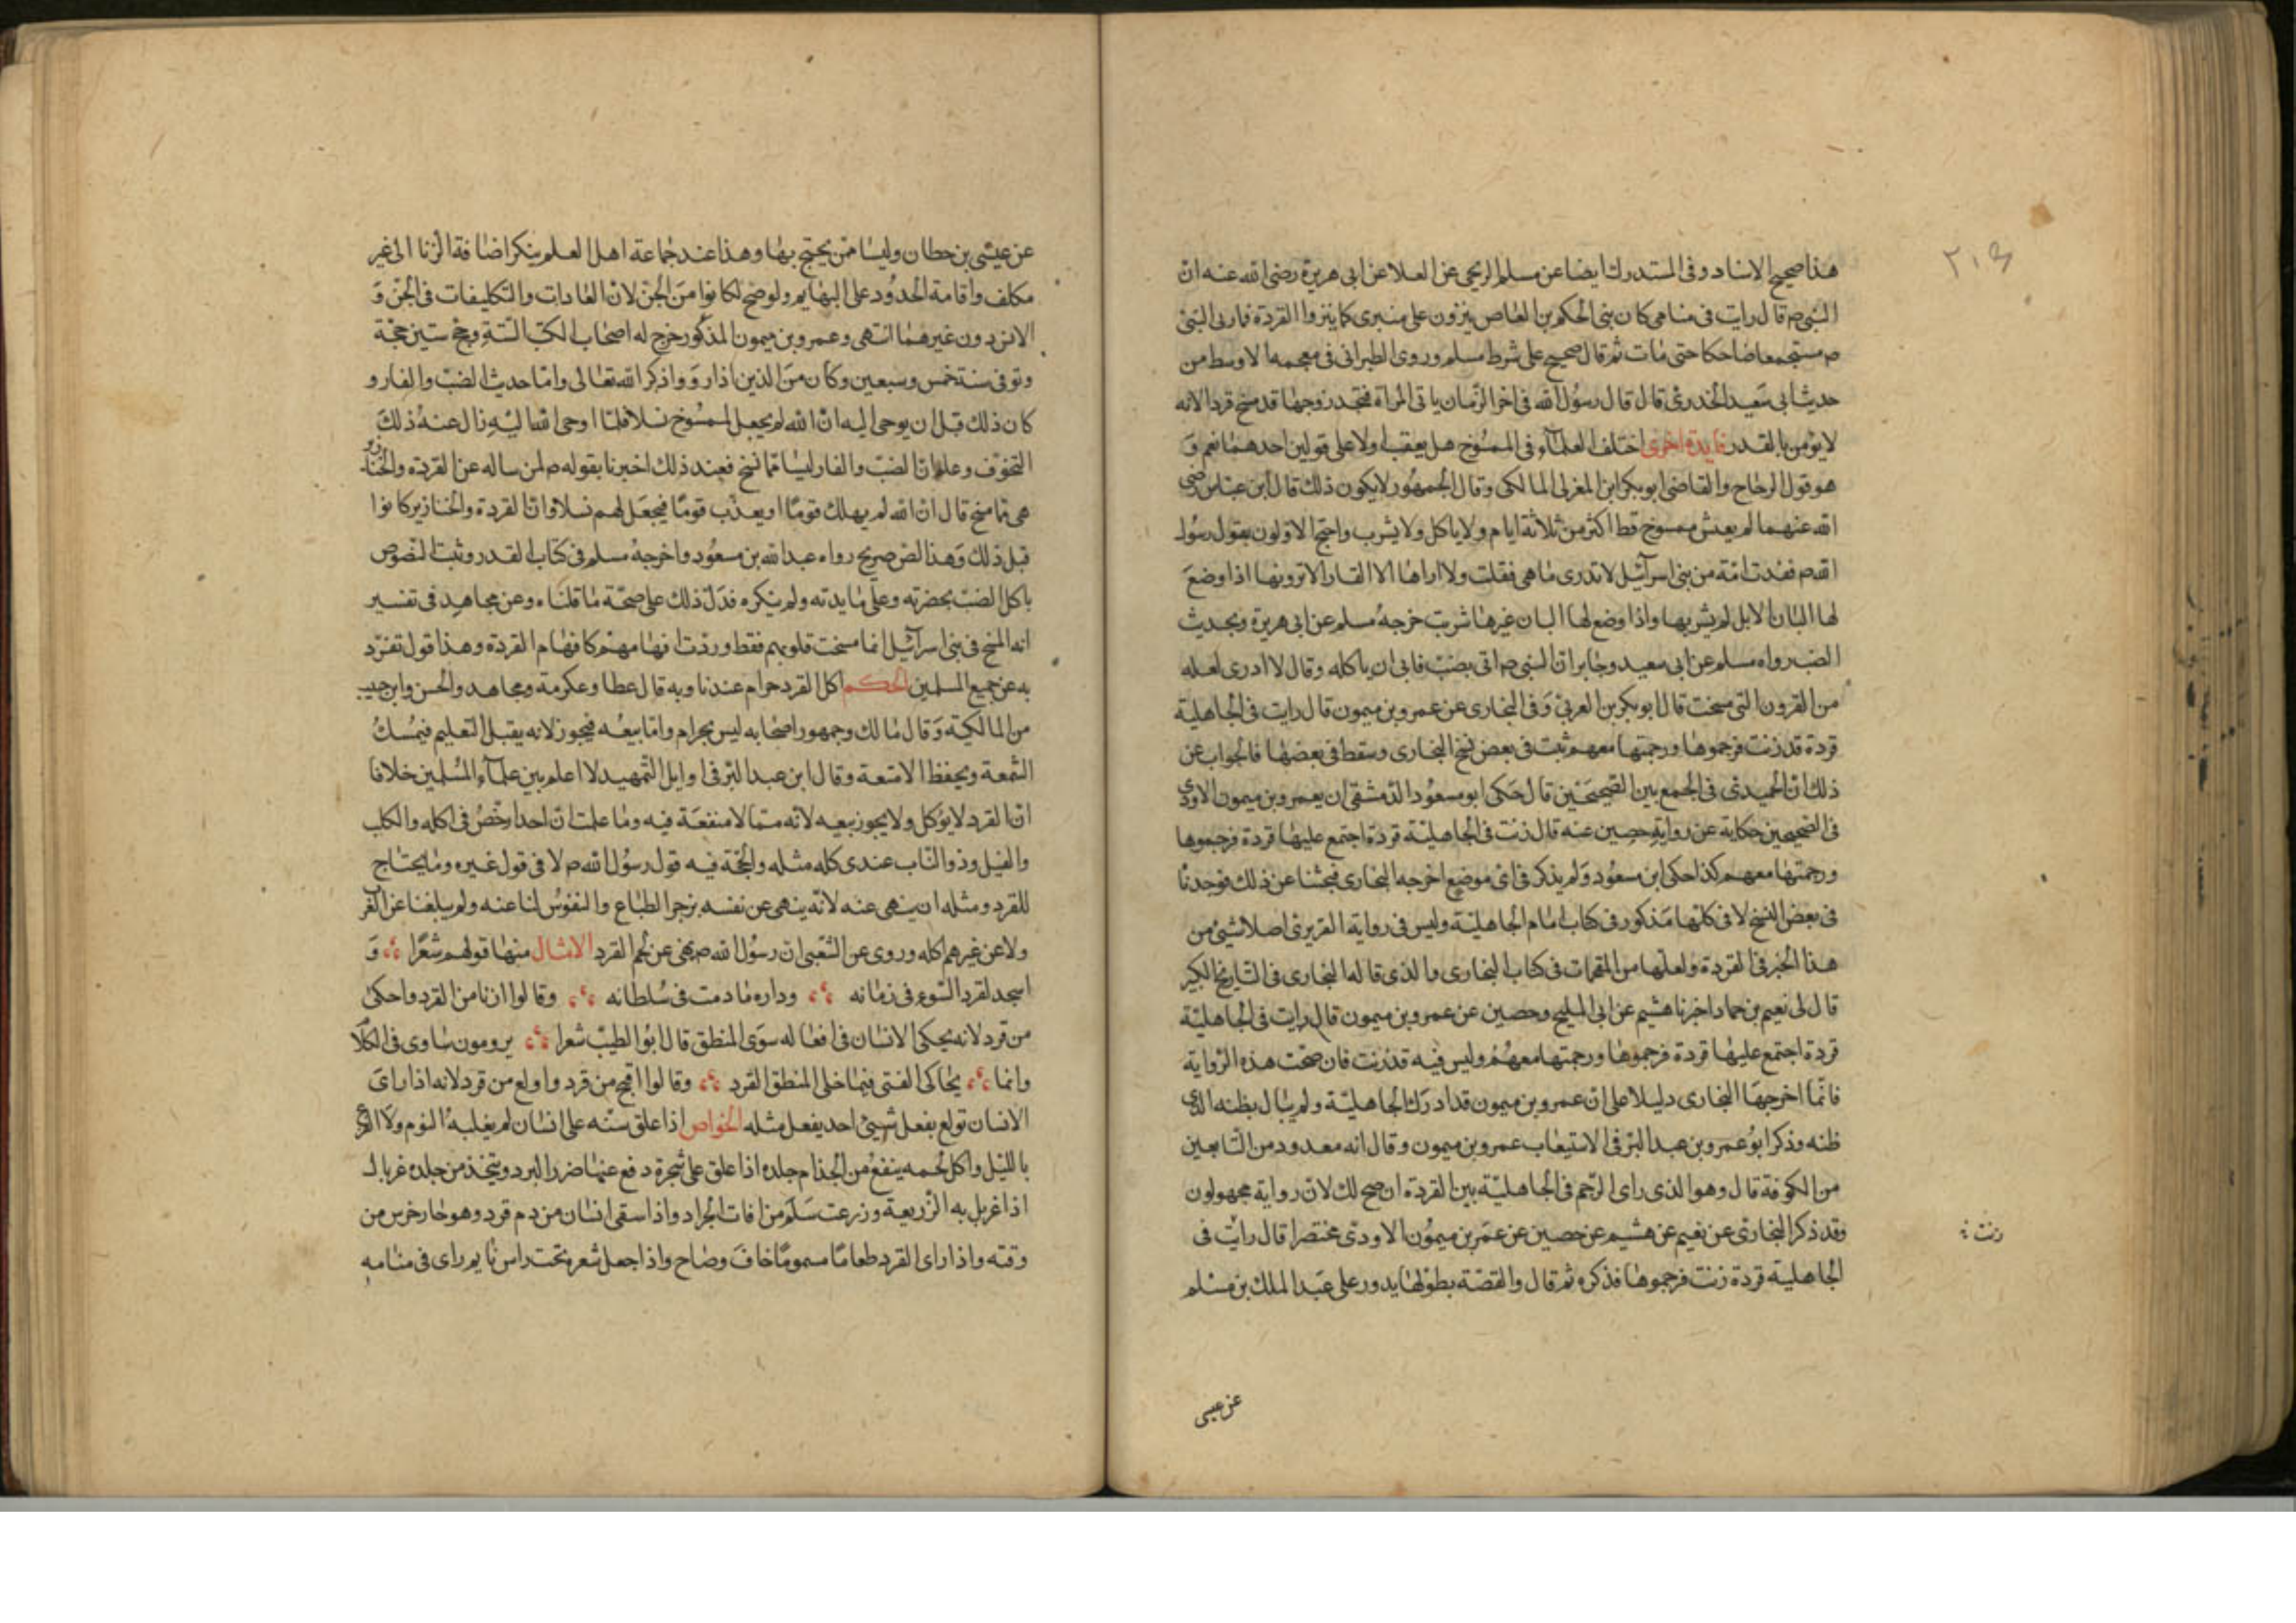 ٢٠٤
هذا صحيح الاسناد وفى المستدرك ايضا عن مسلم الزنجى عن العلا عن ابى هريرة رضى الله عنه ان
النبى ص قال رايت فى منامى كان بنى الحكم بن العاص ينزون على منبرى كما ينزوا القردة فما رى النبى
ص مستجمعا ضاحكا حتى مات ثم قال صحيح على شرط مسلم وروى الطبرانى فى معجمه الاوسط من
حديث ابى سعيد الخدرى قال قال رسول الله فى اخر الزمان ياتى المراة فتجد زوجها قد مسخ قردا لانه
لا يؤمن بالقدر فايدة اخرى اختلف العلماء فى الممسوخ هل يعقب ام لا على قولين احدهما نعم و
هو قول الزجاج والقاضى ابو بكر ابن المغربى المالكى وقال الجمهور لا يكون ذلك قال ابن عباس رضى
الله عنهما لم يعش ممسوخ قط اكثر من ثلاثة ايام ولا ياكل ولا يشرب واحتج الاولون بقول رسول
الله ص فقدت امة من بنى اسرآئيل لا تدرى ما هى فقلت ولا اراها الا الفار الا ترونها اذا وضع
لها البان الابل لم يشربها واذا وضع لها البان غيرها شربت خرجه مسلم عن ابى هريرة وبحديث
الضب رواه مسلم عن ابى سعيد وجابر ان النبى ص اتى بضب فابى ان ياكله وقال لا ادرى لعله
من القرون التى مسخت قال ابو بكر بن العربى وفى البخارى عن عمرو بن ميمون قال رايت فى الجاهلية
قردة قد زنت فرجموها ورجمتها معهم ثبت فى بعض نسخ البخارى وسقط فى بعضها فالجواب عن
ذلك ان الحميدى فى الجمع بين الصحيحين قال حكى ابو مسعود الدمشقى ان يعمرو بن ميمون الاودى
فى الصحيحين حكاية عن رواية حصين عنه قال زنت فى الجاهلية قردة اجتمع عليها قردة فرجموها
ورجمتها معهم كذا حكى ابن مسعود ولم يذكر فى اى موضع اخرجه البخارى فبحثنا عن ذلك فوجدنا
فى بعض النسخ لا فى كلها مذكور فى كتاب امام الجاهلية وليس فى رواية الفربرى اصلا شيئ من
هذا الخبر فى القردة ولعلها من المقحمات فى كتاب البخارى والذى قاله البخارى فى التاريخ الكبير
قال لى نعيم بن حماد اخبرنا هشيم عن ابى المليح وحصين عن عمرو بن ميمون قال رايت فى الجاهلية
قردة اجتمع عليها قردة فرجموها ورجمتها معهم وليس فيه قد زنت فان صحت هذه الرواية
فانما اخرجها البخارى دليلا على ان عمرو بن ميمون قد ادرك الجاهلية ولم يبال بظنه الذى
ظنه وذكر ابو عمرو بن عبد البر فى الاستيعاب عمرو بن ميمون وقال انه معدود من التابعين
من الكوفة قال وهو الذى راى الرجم فى الجاهلية بين القردة ان صح لك لان رواية مجهولون
وقد ذكر البخارى عن نعيم عن هشيم عن حصين عن عمر بن ميمون الاودى مختصرا قال رايت فى
زنت
الجاهلية قردة زنت فرجموها فذكره ثم قال والقصة بطولها يدور على عبد الملك بن مسلم
عن عيسى
عن عيسى بن حطان وليسا ممن يحتج بها وهذا عند جماعة اهل العلم ينكر اضافة الزنا الى غير
مكلف واقامة الحدود على البهايم ولو ضح لكانوا من الجن لان العادات والتكليفات فى الجن و
الانس دون غيرهما انتهى وعمرو بن ميمون المذكور خرج له اصحاب الكتب الستة وحج ستين حجة
وتوفى سنة خمس وسبعين وكان من الذين اذا روو اذكر الله تعالى واما حديث الضب والفار و
كان ذلك قبل ان يوحى اليه ان الله لم يجعل لممسوخ نسلا فلما اوحى الله اليه زال عنه ذلك
التخوف وعلم ان الضب والفار ليسا مما نسخ فعند ذلك اخبرنا بقوله ص لمن ساله عن القردة والخنازير
هى مما مسخ قال ان الله لم يهلك قوما او يعذب قوما فيجعل لهم نسلا وان القردة والخنازير كانوا
قبل ذلك وهذا النص صريح رواه عبد الله بن مسعود واخرجه مسلم فى كتاب القدر وثبت النصوص
باكل الضب بحضرته وعلى مايدته ولم ينكره فدل ذلك على صحة ما قلناه وعن مجاهد فى تفسير
انه المسخ فى بنى اسرآئيل انما مسخت قلوبهم فقط وردت افهامهم كافهام القردة وهذا قول تفرد
به عن جميع المسلمين الحكم اكل القرد حرام عندنا وبه قال عطا وعكرمة ومجاهد والحسن وابن حبيب
من المالكية وقال مالك وجمهور اصحابه ليس بحرام واما بيعه فيجوز لانه يقبل التعليم فيمسك
الشمعة ويحفظ الامتعة وقال ابن عبد البر فى اوايل التمهيد لا اعلم بين علماء المسلمين خلافا
ان القرد لا يؤكل ولا يجوز بيعه لانه مما لا منفعة فيه وما علمت ان احدا رخص فى اكله والكلب
والفيل وذو الناب عندى كله مثله والحجة فيه قول رسول الله ص لا فى قول غيره وما يحتاج
للقرد ومثله ان ينهى عنه لانه ينهى عن نفسه بزجر الطباع والنفوس لنا عنه ولم يبلغنا عن القر
ولا عن غيرهم اكله وروى عن الشعبى ان رسول الله ص نهى عن لحم القرد الامثال منها قولهم شعرا و
اسجد لقرد السوء فى زمانه ودارِه ما دمت فى سلطانه وقالوا ازنا من القرد واحكى
من قرد لانه يحكى الانسان فى افعاله سوى المنطق قال ابو الطيب شعرا يرومون شاوى فى الكلام
وانما يحاكى الفتى فيما خلى المنطق القرد وقالوا اقبح من قرد واولع من قرد لانه اذا راى
الانسان تولع بفعل شيئ احد يفعل مثله الخواص اذا علق سنه على انسان لم يغلبه النوم ولا الفزع
بالليل واكل لحمه ينفع من الجذام جلده اذا علق على شجرة دفع عنها ضرر البرد ويتخذ من جلده غربال
اذا غربل به الزريعة وزرعت سلم من افات الجراد واذا سقى انسان من دم قرد وهو حار خرس من
وقته واذا راى القرد طعاما مسموما خاف وصاح واذا جعل شعره تحت راس نايم راى فى منامه